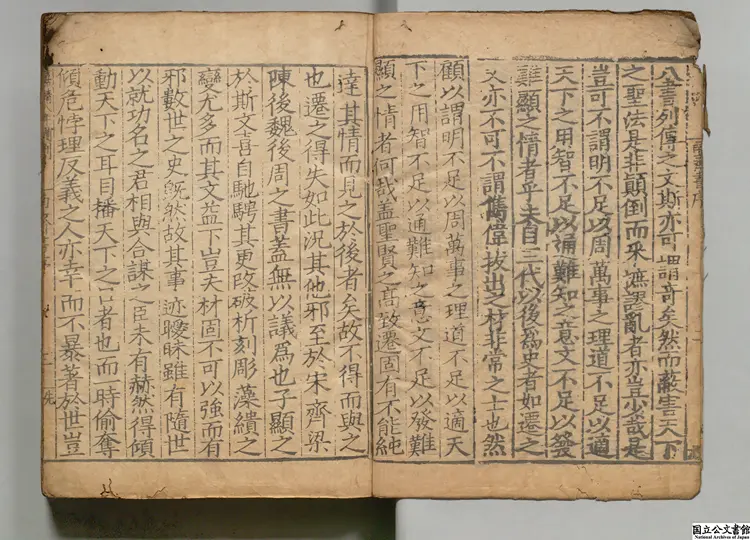 八書列傳之文斯亦可謂奇矣然而蔽害天下
之聖法是非顛倒而采摭謬亂者亦豈少哉是
豈可不謂明不足以周萬事之理道不足以適
天下之用智不足以通難知之意文不足以發
難顯之情者乎夫自三代以後爲史者如遷之
文亦不可不謂雋偉拔出之材非常之士也然
顧以謂明不足以周萬事之理道不足以適天
下之用智不足以通難知之意文不足以發難
顯之情者何哉蓋聖賢之高致遷固有不能純
達其情而見之於後者矣故不得而與之
也遷之得失如此況其他邪至於宋齊梁
陳後魏後周之書蓋無以議爲也子顯之
於斯文喜自馳騁其更改破析刻彫藻繢之
變尤多而其文益下豈夫材固不可以強而有
邪數世之史旣然故其事迹曖昧雖有隨世
以就功名之君相與合謀之臣未有赫然得傾
動天下之耳目播天下之口者也而一時偷奪
傾危悖理反義之人亦幸而不暴著於世豈
国立公文書館
National Archives of Japan